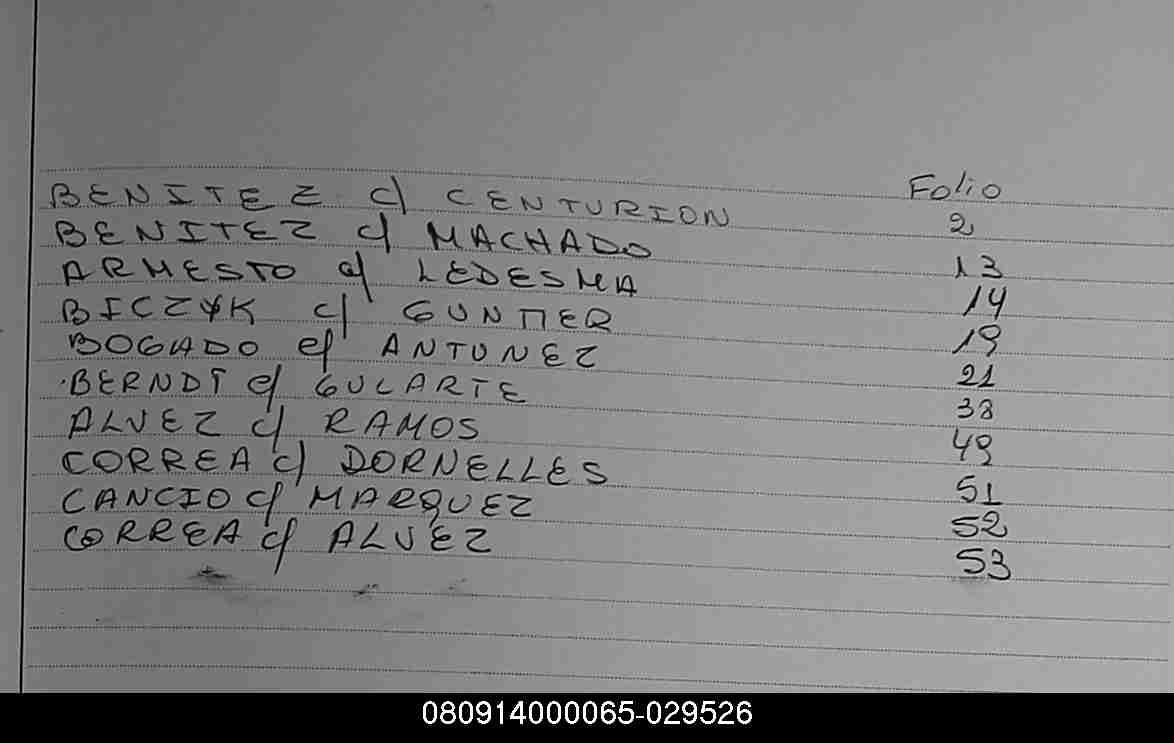 Folio
BENITEZ c/ CENTURION 2
BENITEZ c/ MACHADO 13
ARMESTO c/ LEDESMA 14
BICZYK c/ GUNTHER 19
BOGADO c/ ANTUNEZ 21
BERNDT c/ GULARTE 38
ALVEZ c/ RAMOS 49
CORREA c/ DORNELLES 51
CANCIO c/ MARQUEZ 52
CORREA c/ ALVEZ 53
080914000065-029526